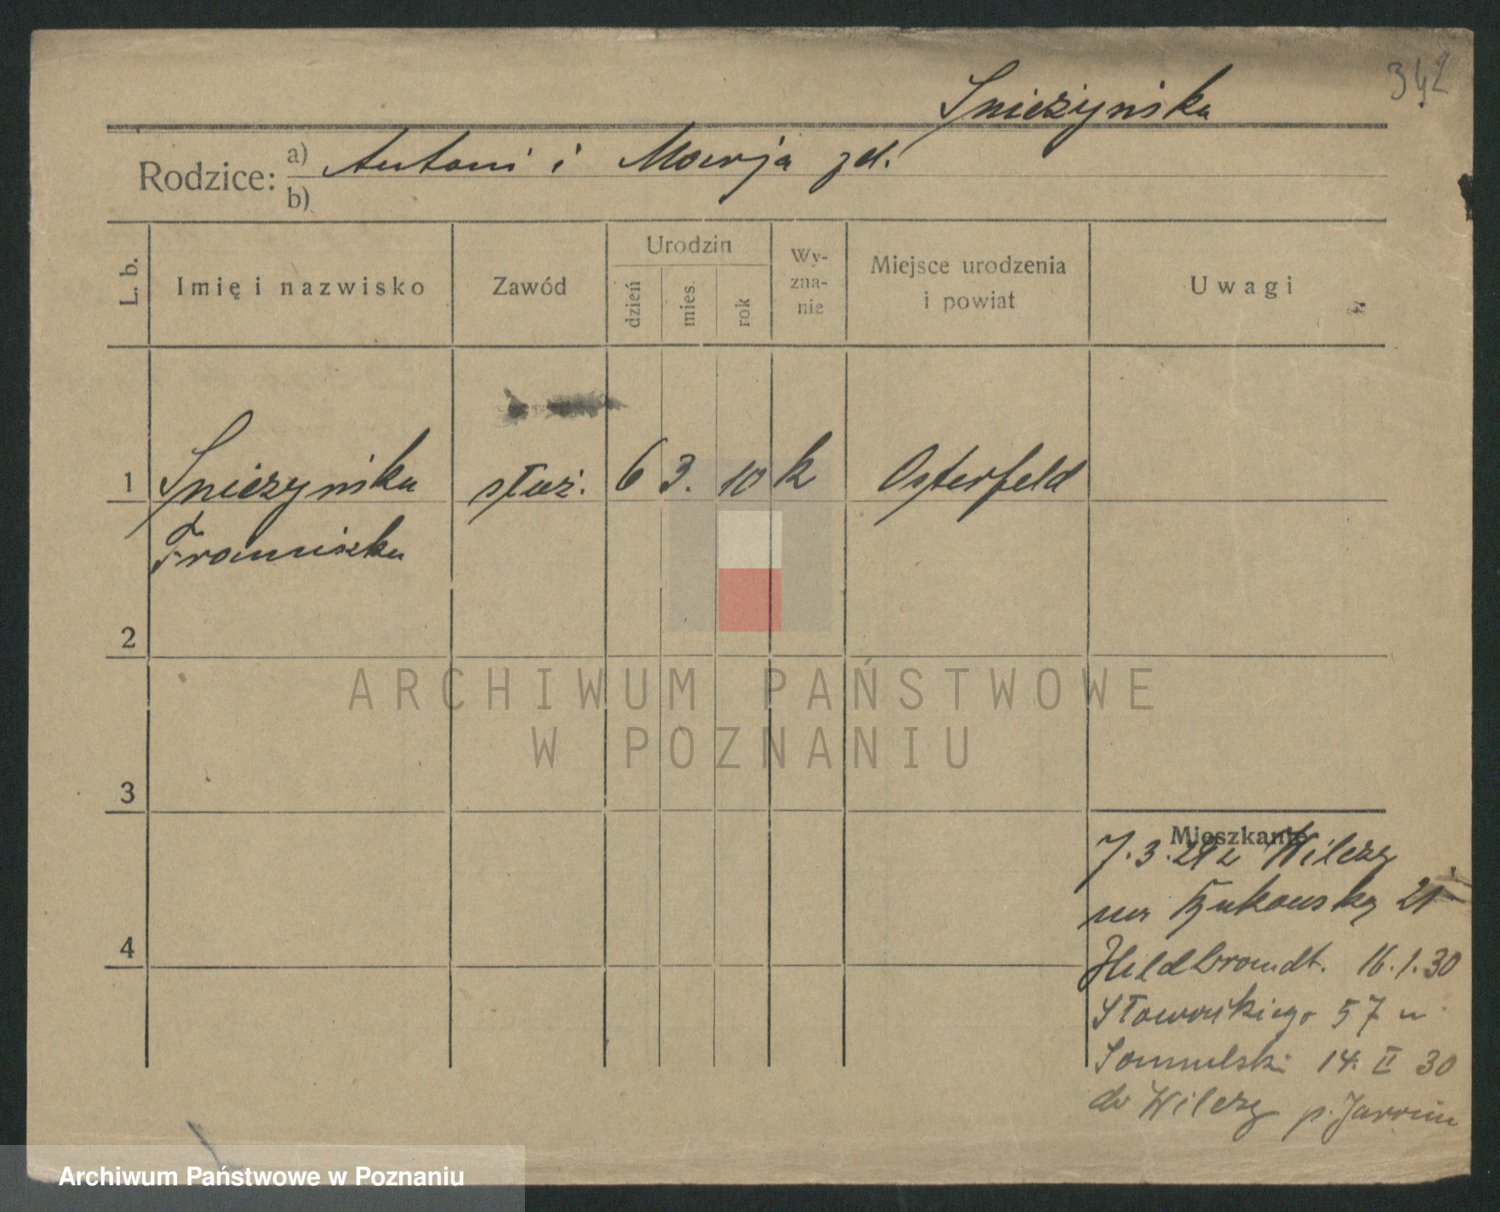 342
Śnieżyńska
Rodzice: a) Antoni i Marja zd.
b)
L. b.
Imię i nazwisko
Zawód
Urodzin
dzień
mies.
rok
Wy-
zna-
nie
Miejsce urodzenia
i powiat
Uwagi
1 Śnieżyńska służ. 6 3. 10 k Osterfeld
Franciszka
2
3
4
Mieszkanie
7.3.29 z Wilczy
na 21
Heldbrandt. 16.1.30
Słowackiego 57 u
14. II 30
do Wilczy p. Jarocin
ARCHIWUM PAŃSTWOWE
W POZNANIU
Archiwum Państwowe w Poznaniu